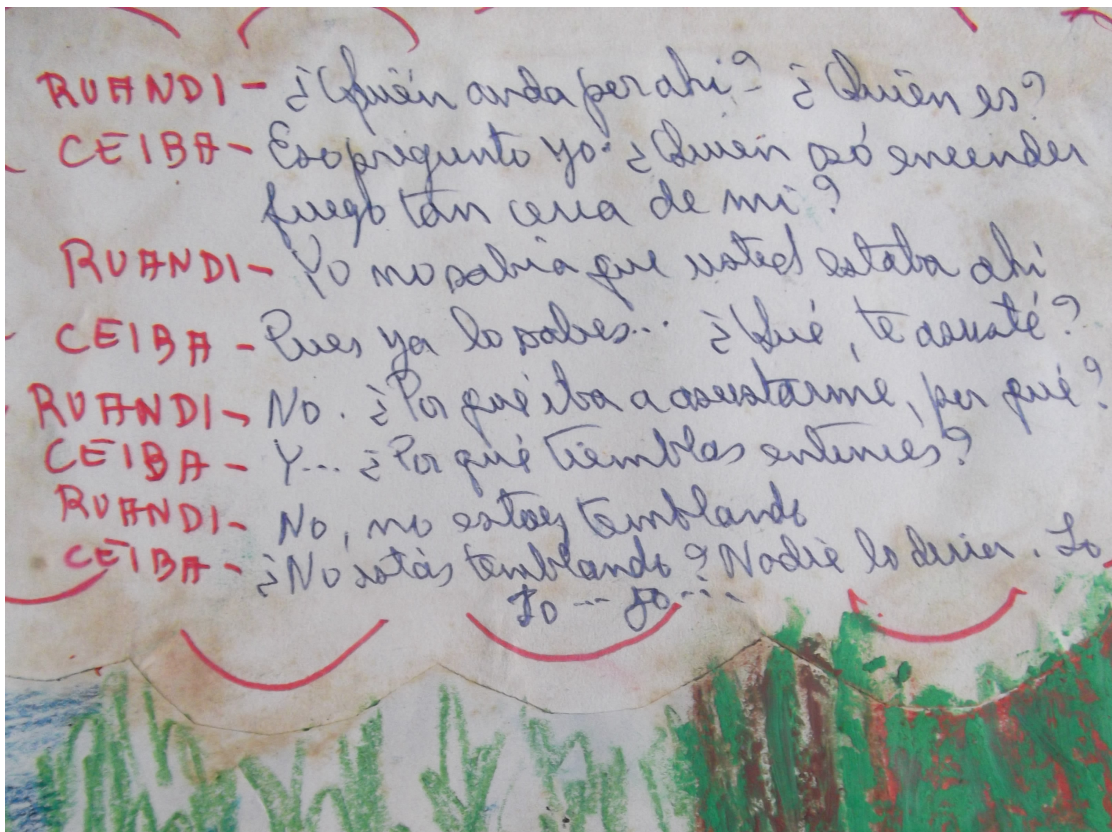 RUANDI - ¿Quién anda por ahi? ¿Quién es?
CEIBA - Eso pregunto yo. ¿Quién osó encender
fuego tan cerca de mi?
RUANDI - Yo no sabia que usted estaba ahi
CEIBA - Pues ya lo sabes... ¿Qué, te asusté?
RUANDI - No. ¿Por qué iba a asustarme, por qué?
CEIBA - Y... ¿Por qué tiemblas entonces?
RUANDI - No, no estoy temblando
CEIBA - ¿No estás temblando? Nadie lo diria. Jo
Jo... Jo...